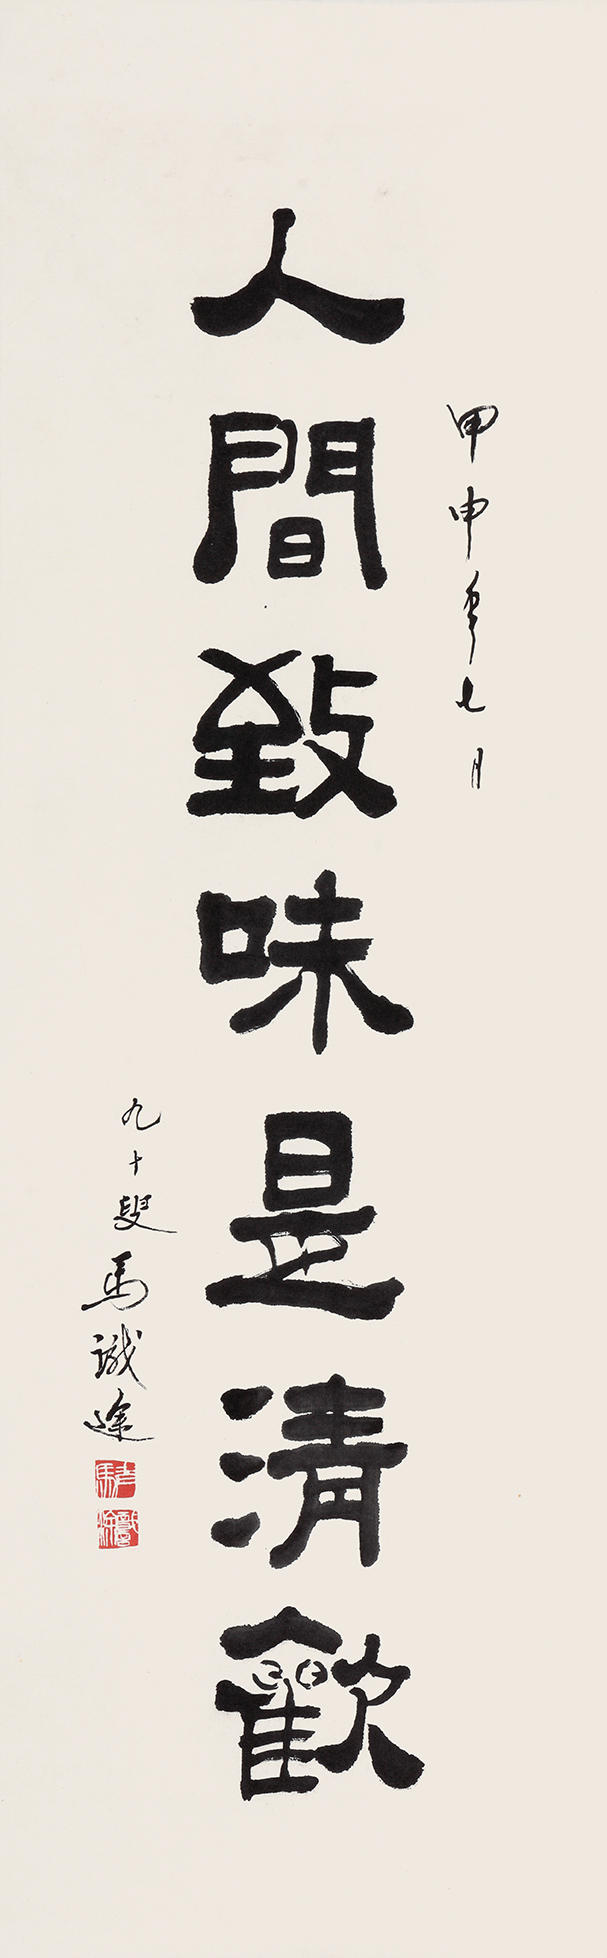 甲申年七月
人間致味是清歡
九十叟馬識途